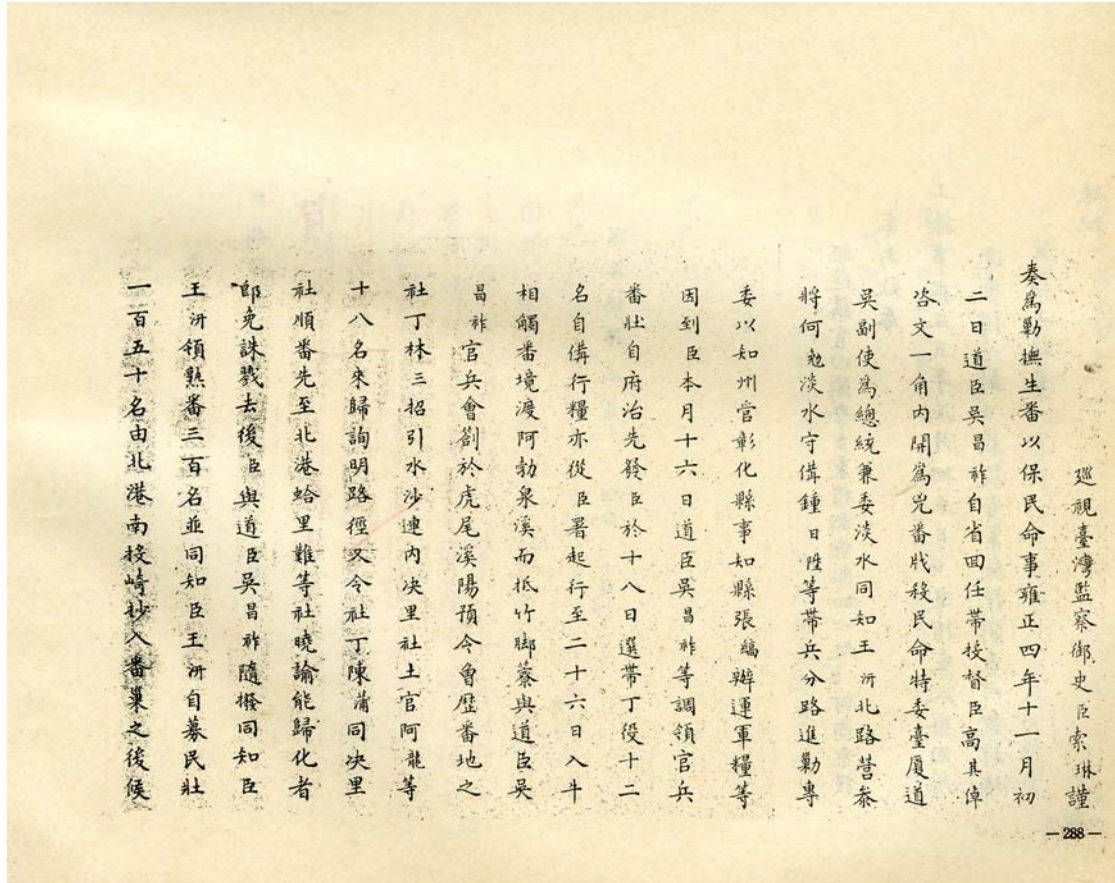 巡視臺灣監察御史臣索琳謹
奏為勦撫生番以保民命事雍正四年十一月初
二日道臣吳昌祚自省回任帶投督臣高其倬
咨文一角內開為兇番戕殺民命特委臺厦道
吳副使為總統兼委淡水同知王汧北路營參
將何勉淡水守備鍾日陞等帶兵分路進勦專
委以知州管彰化縣事知縣張縞辦運軍糧等
因到臣本月十六日道臣吳昌祚等調領官兵
番壯自府治先發臣於十八日選帶丁役十二
名自備行糧亦從臣署起行至二十六日入牛
相觸番境渡阿勃泉溪而抵竹脚藔與道臣吳
昌祚官兵會劄於虎尾溪陽預令會歷番地之
社丁林三招引水沙連內决里社土官阿龍等
十八名來歸詢明路徑又令社丁陳蒲同决里
社順番先至北港蛤里難等社曉諭能歸化者
即免誅戮去後臣與道臣吳昌祚隨撥同知臣
王汧領熟番三百名並同知臣王汧自募民壯
一百五十名由北港南投崎抄入番巢之後候
—288—